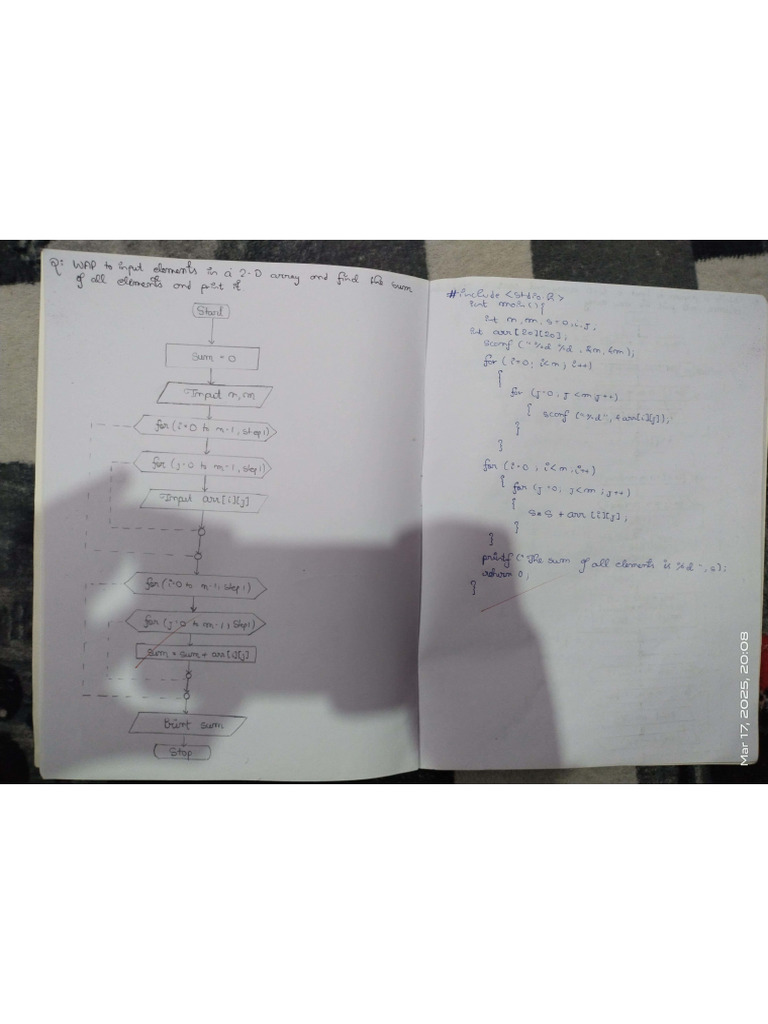 Q: WAP to input elements in a 2-D array and find the sum
of all elements and print it.
Start
Sum = 0
Input n, m
for (i=0 to n-1, step 1)
for (j=0 to m-1, step 1)
Input arr[i][j]
for (i=0 to n-1, step 1)
for (j=0 to m-1, step 1)
Sum = sum + arr[i][j]
Print sum
Stop
#include <stdio.h>
int main(){
int n, m, s=0, i, j;
int arr[20][20];
scanf ("%d %d", &n, &m);
for (i=0; i<n; i++)
{
for (j=0; j<m j++)
{ scanf ("%d", &arr[i][j]);
}
}
for (i=0; i<n; i++)
{ for (j=0; j<m; j++)
{
s=s + arr[i][j];
}
}
printf ("The sum of all elements is %d", s);
return 0;
}
Mar 17, 2025, 20:08